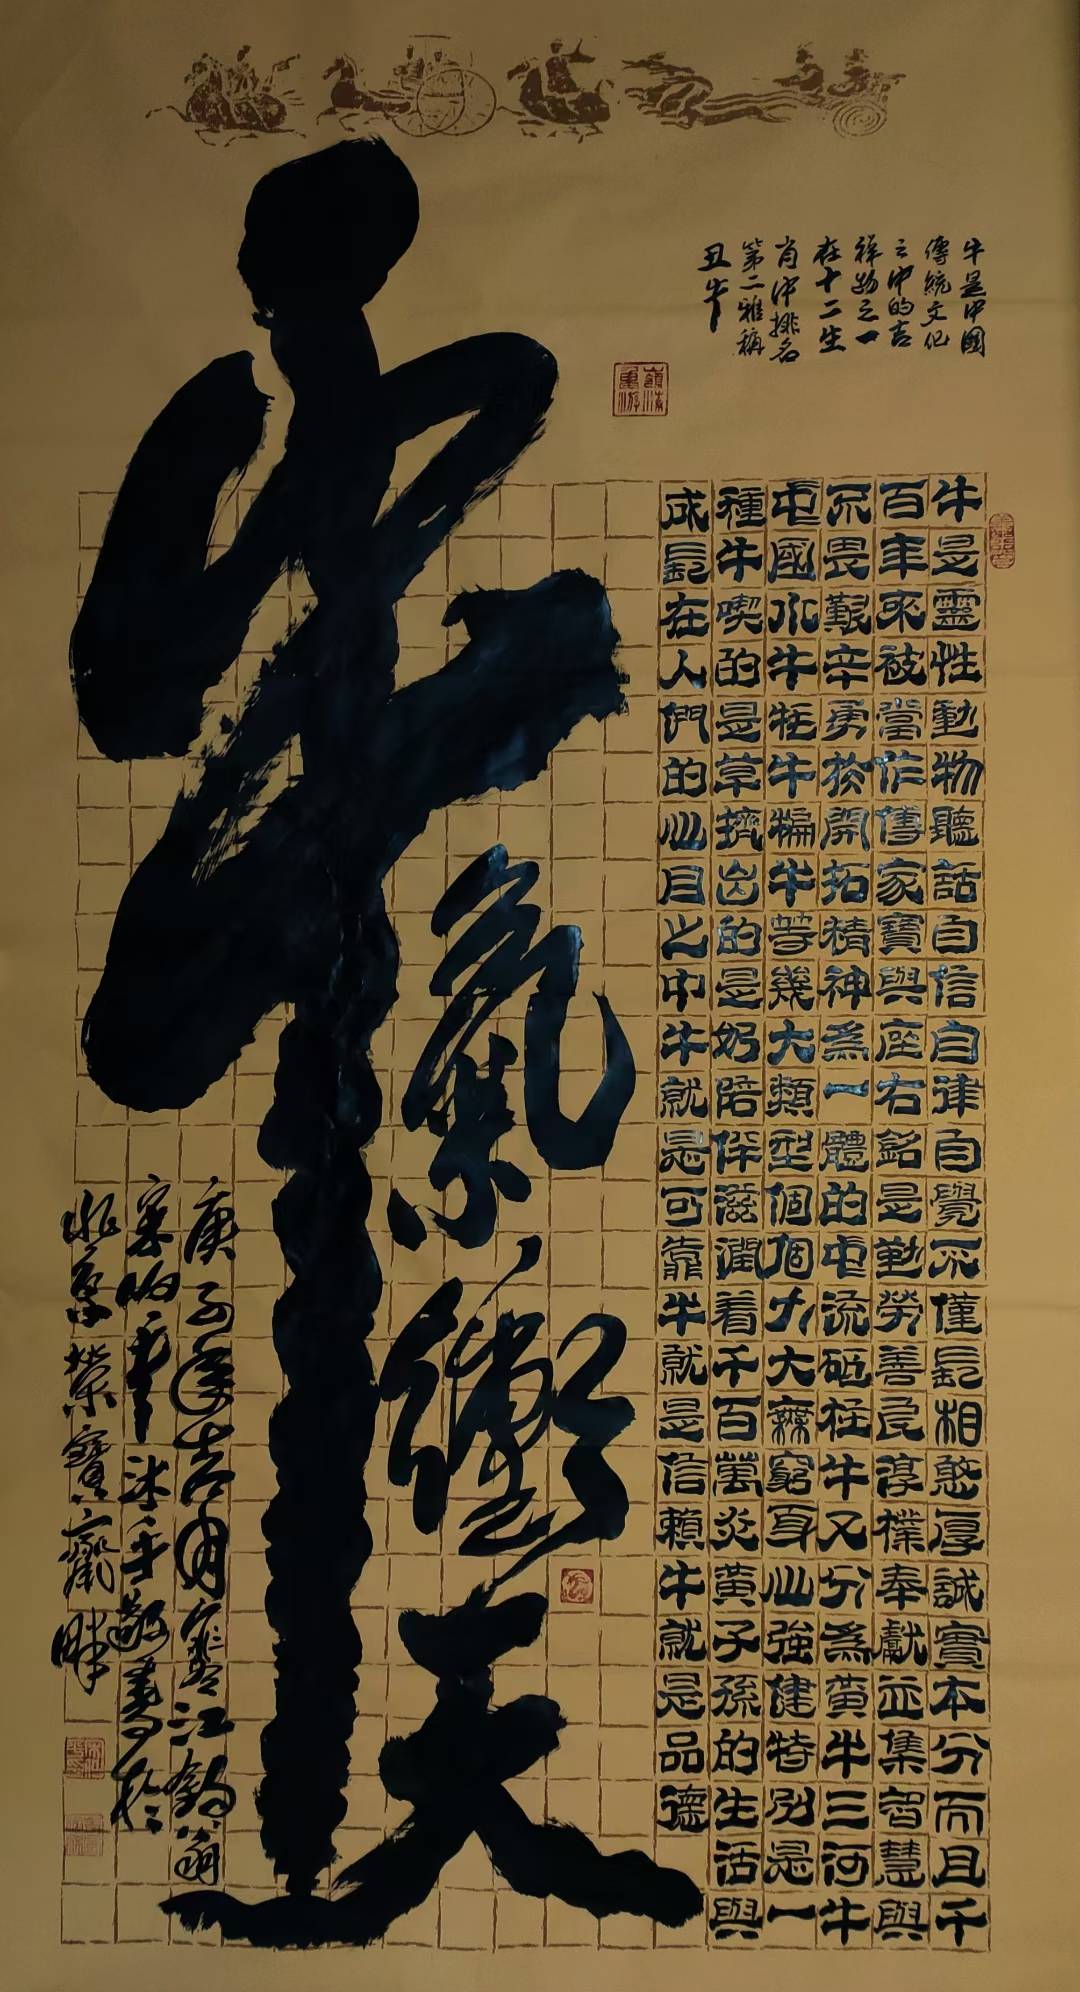 牛是中國
傳統文化
之中的吉
祥物之一
在十二生
肖中排名
第二雅稱
丑牛
牛是靈性動物聽話自信自律自覺不僅長相憨厚誠實本分而且千
百年來被當作傳家寶與座右銘是勤勞善良淳樸奉獻並集智慧與
不畏艱辛勇於開拓精神為一體的中流砥柱牛又分為黃牛三河牛
中國水牛牦牛犏牛等幾大類型個個力大無窮身心強健特別是一
種牛喫的是草擠出的是奶陪伴滋潤着千百萬炎黃子孫的生活與
成長在人們的心目之中牛就是可靠牛就是信賴牛就是品德
牛氣衝天
庚子年吉月寒江釣翁
沐手敬書於
北京榮寶齋畔